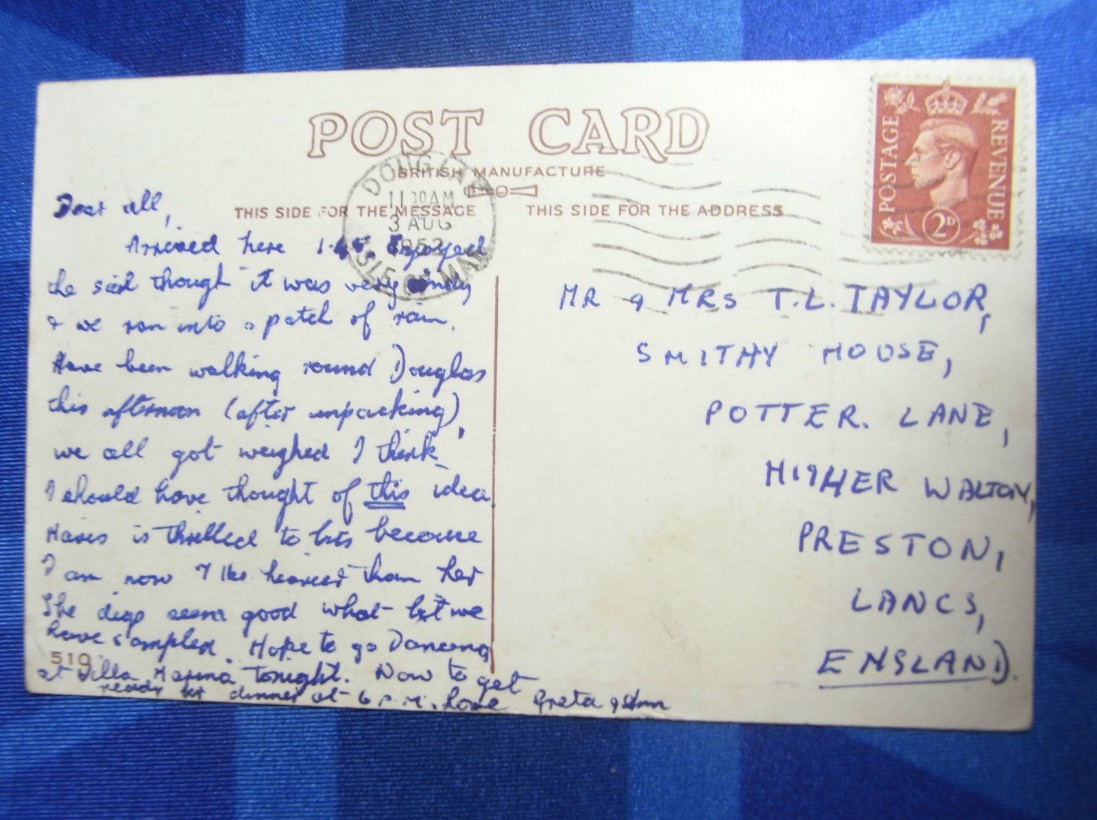 POST CARD
BRITISH MANUFACTURE
THIS SIDE FOR THE MESSAGE
THIS SIDE FOR THE ADDRESS
DOUGLAS
11 30 AM
3 AUG
1952
ISLE OF MAN
POSTAGE
REVENUE
2D
Dear all,
Arrived here 1.45. Enjoyed
the sail though it was very windy
& we ran into a patch of rain.
Have been walking round Douglas
this afternoon (after unpacking),
we all got weighed I think
I should have thought of this idea
Mavis is thrilled to bits because
I am now 7 lbs heavier than her
The digs seem good what bit we
have sampled. Hope to go Dancing
at Villa Marina tonight. Now to get
ready for dinner at 6 P.M. Love Greta & Ann
510
MR & MRS T.L. TAYLOR,
SMITHY HOUSE,
POTTER. LANE,
HIGHER WALTON,
PRESTON,
LANCS,
ENGLAND.